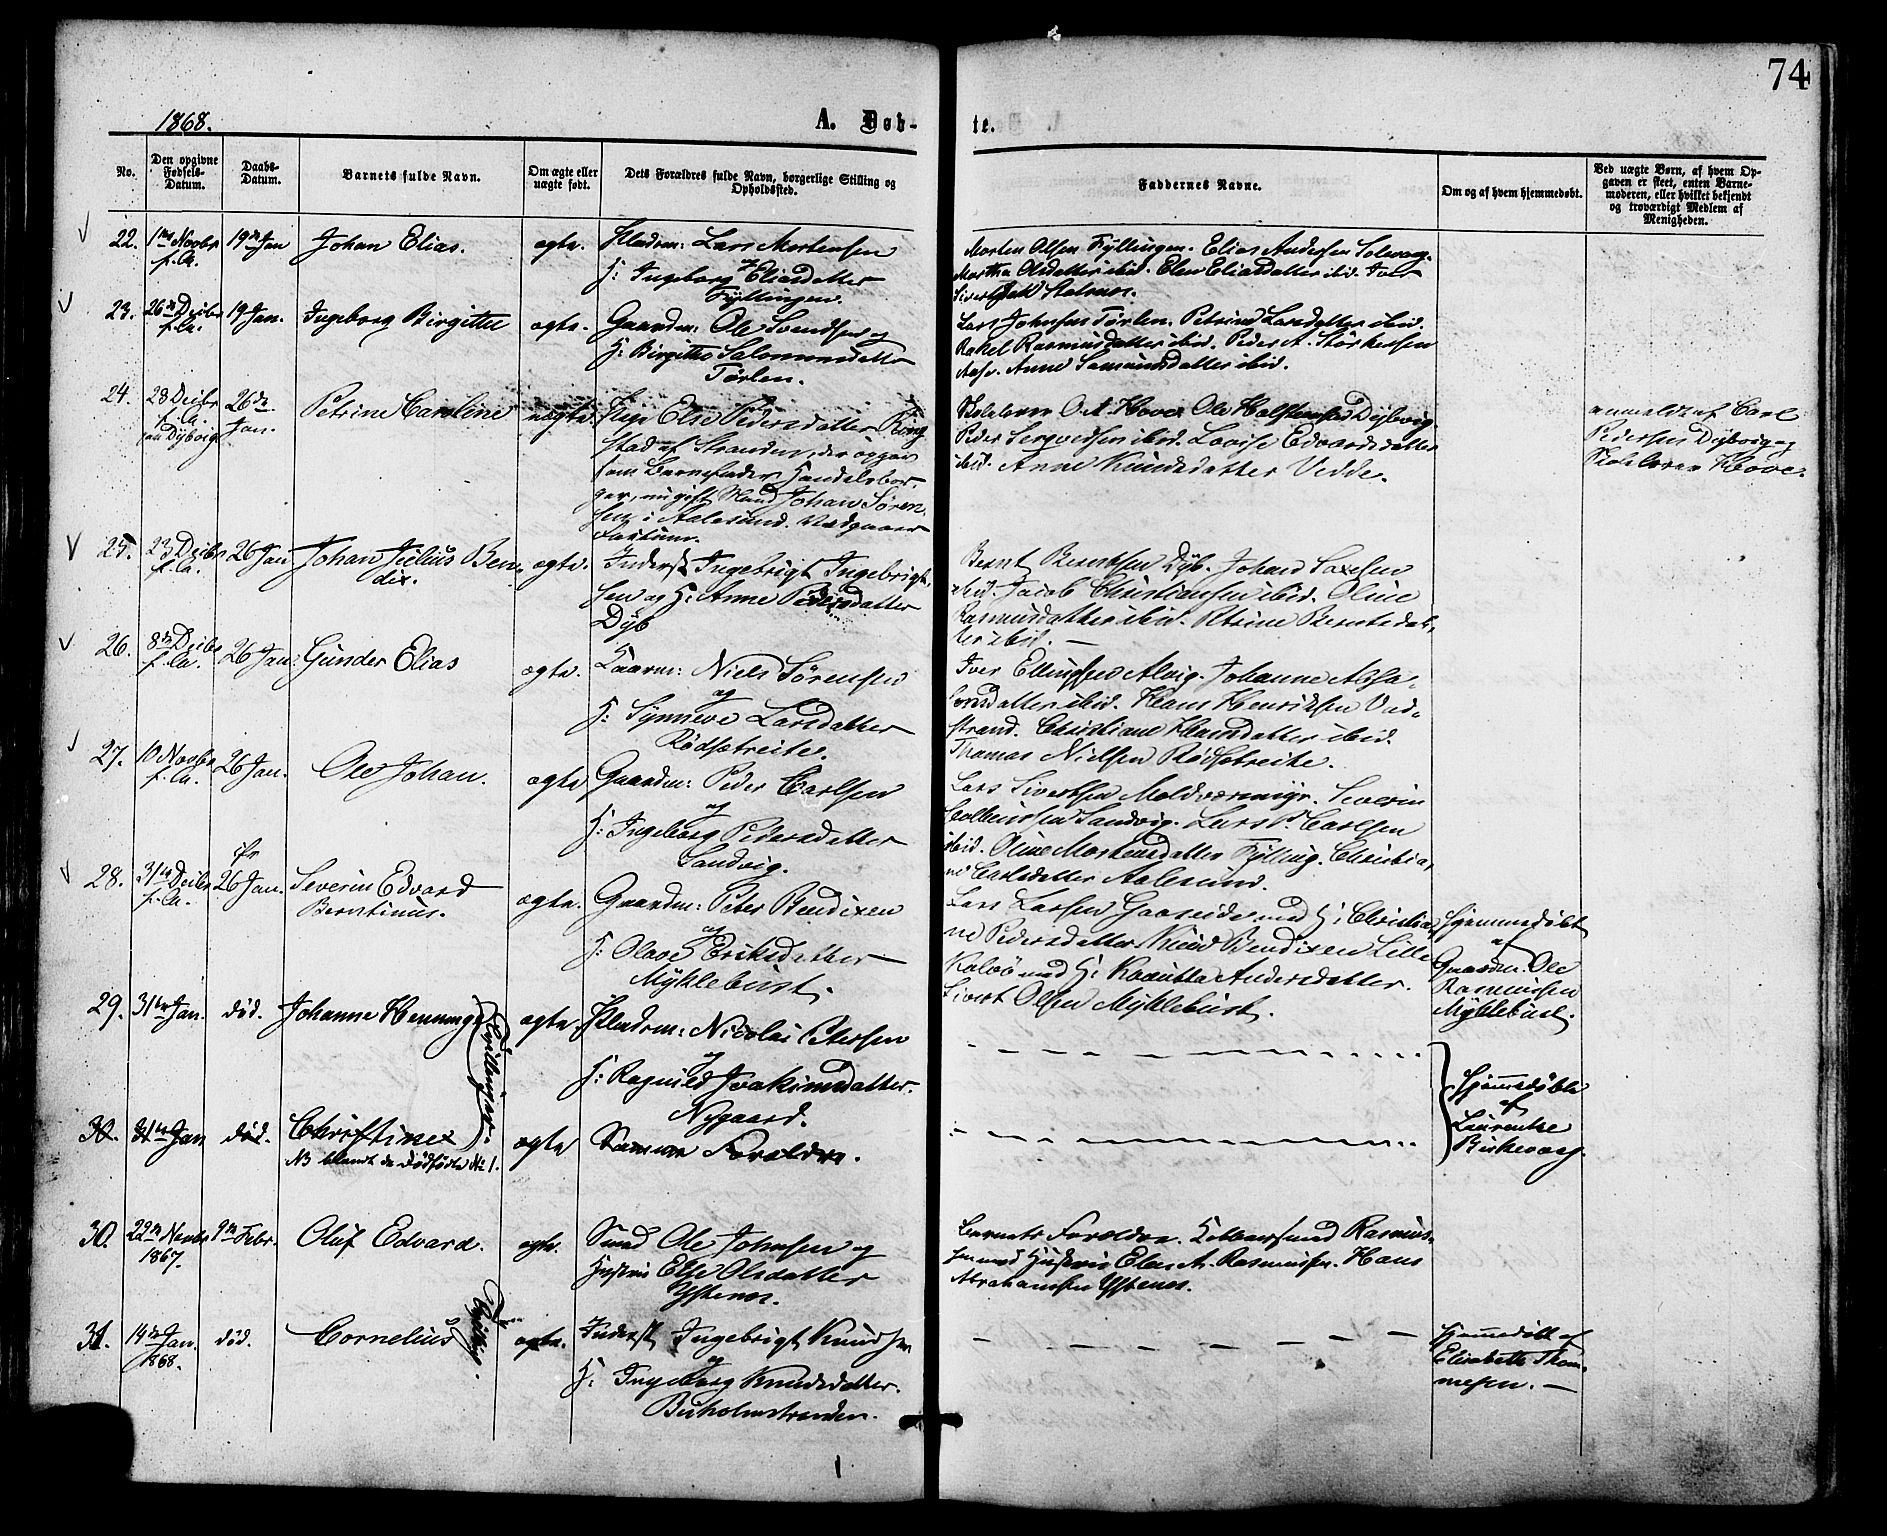 74
1868.
A. Døb-
te.
No.
Den opgivne
Fødsels-
Datum.
Daabs-
Datum.
Barnets fulde Navn.
Om ægte eller
uægte født.
Dets Forældres fulde Navn, borgerlige Stilling og
Opholdssted.
Faddernes Navne.
Om og af hvem hjemmedøbt.
Ved uægte Børn, af hvem Op-
gaven er skeet, enten Barne-
moderen, eller hvilket bekjendt
og troværdigt Medlem af
Menigheden.
22. 1ste Novbr 19de Jan Johan Elias. ægte. Huusm: Lars Mortensen
f. A. og
H: Ingeborg Eliasdatter
Fyllingen.
Morten Olsen Fyllingen. Elias Andersen Solevaag.
Martha Olsdatter ibid. Elen Eliasdatter ibid. Iver
Sivertsen
23. 26de Decbr 19 Jan. Ingeborg Birgitte ægte. Gaardm: Ole Svendsen og
f. A.
H: Birgitte Salomonsdatter
Tørlen.
Lars Johnsen Tørlen. Petrine Larsdatter ibid.
Rakel Rasmusdatter ibid. Peder A. Størkersen
Aase. Anne Samundsdatter ibid.
24. 28 Decbr 26de Petrine Caroline uægte. Pige Else Pedersdatter Ring
f. A. Jan.
paa Dybvig
stad af Stranden, der opgav
som Barnefader Handelsbor-
ger, ugift Mand Johan Søren-
sen i Aalesund.
Skolelærer O. A. Hove. Ole Holstensen Dybvig.
Peder ibid. Lovise Edvardsdatter
ibid. Anne Knudsdatter Vedde.
anmeldt af Carl
Pedersen Dybvig og
Skolelærer Hove.
25. 23 Decbr 26 Jan Johan Julius Ben- ægte. Inderst Ingebrigt Ingebrigt-
f. A. dix.
sen og H: Anne Pedersdatter
Dyb
Bernt Berntsen Dyb. Johan
ibid. Jacob Christiansen ibid. Oline
Rasmusdatter ibid. Petrine Berntsdat-
ter ibid. —
26. 8de Decbr 26 Jan. Gunder Elias ægte. Kaarm: Niels Sørensen
f. A. og
H: Synneve Larsdatter
Rødsetreite.
Iver Ellingsen Alvig. Johanne Absa-
lonsdatter ibid. Hans Henriksen Vad-
strand. Christiane Hansdatter ibid.
Thomas Nielsen Rødsetreite.
27. 10 Novbr 26 Jan. Ole Johan. ægte Gaardm: Peder Carlsen
f. A. og
H: Ingeborg Pedersdatter
Sandvig.
Lars Sivertsen Moldværsmyr. Severin
Sandvig. Lars P. Carlsen
ibid. Oline Mortensdatter Fylling. Christia-
ne Carlsdatter Aalesund.
28. 31te Decbr 26 Jan. Severin Edvard ægte. Gaardm: Peter Bendixen
f. A. Berntinus. og
H: Olave Eriksdatter
Myklebust.
Lars Larsen Gaaseide med H: Christia-
ne Pedersdatter. Knud Bendixen Lille
Kalvø med H: Andersdatter.
Sivert Olsen Myklebust.
Hjemmedøbt
af
Gaardm: Ole
Rasmussen
Myklebust.
29. 31te Jan. død. Johanne Henninge ægte. Huusm: Nicolai Petersen
og
H: Ragnild Joakimsdatter
Nygaard.
(Tvillinger.)
30. 31te Jan død. Christine ægte Samme Forældre.
NB blandt de dødfødte No 1.
Hjemmedøbte
af
Laurentze
Birkevaag.
30. 22de Novbr 9de Febr. Oluf Edvard. ægte. Smed Ole Johnsen og
1867.
Hustru Else Olsdatter
Ystenes.
Barnets Forældre. Rasmus-
sen med Hustru Elen A. Rasmussen. Hans
Abrahamsen Ystenes.
31. 14de Jan. død. Cornelius ægte. Inderst Ingebrigt Knudsen
1868. og
H: Ingeborg Knudsdatter.
Buholmstranden.
Tvilling.
Hjemmedøbt af
Elisabeth Thom-
mesen. —